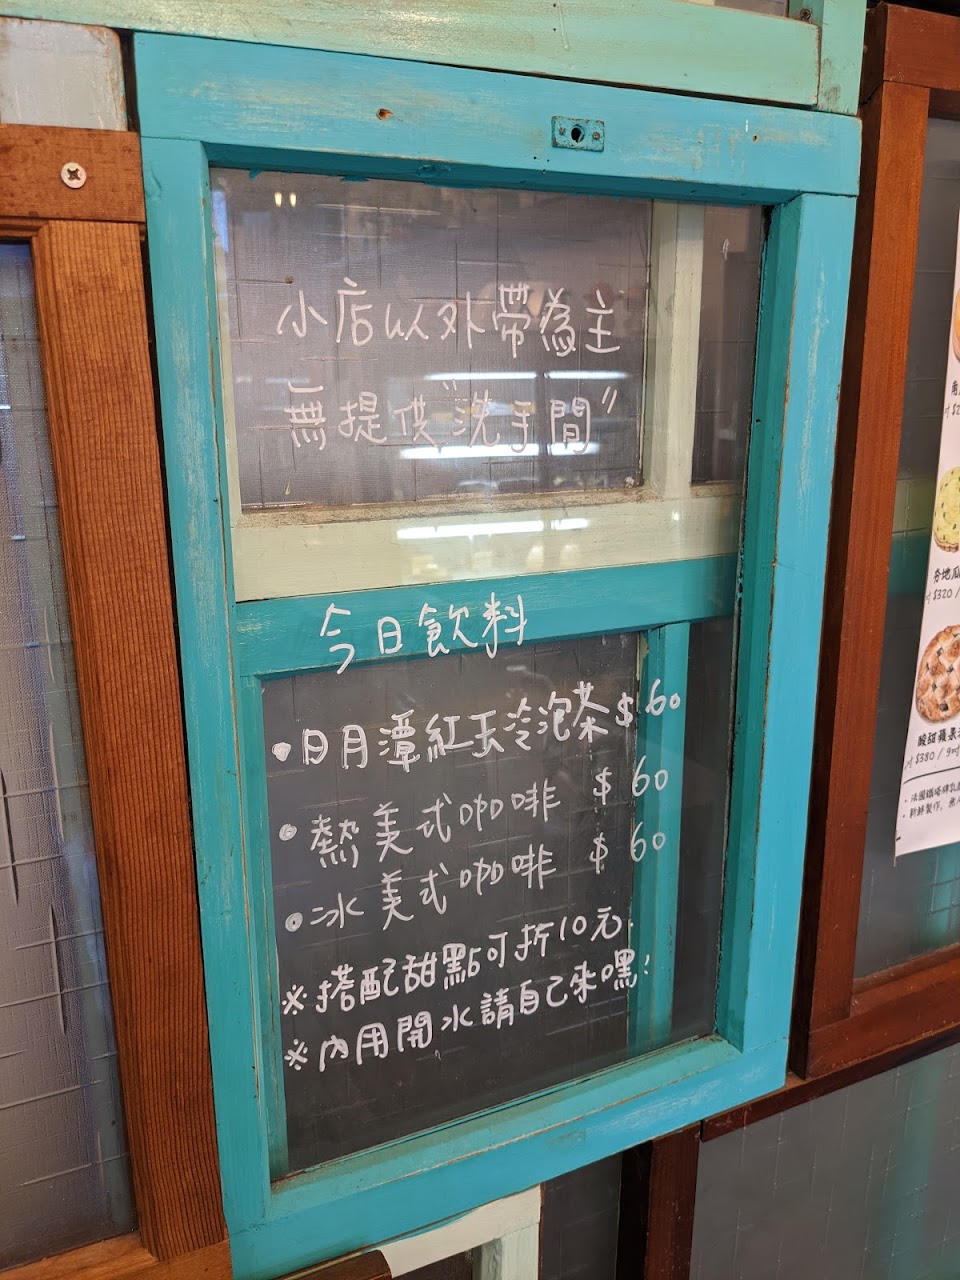 小店以外帶為主
無提供"洗手間"
今日飲料
•日月潭紅玉冷泡茶$60
•熱美式咖啡 $60
•冰美式咖啡 $60
※搭配甜點可折10元.
※內用開水請自己來嘿!
夯地瓜
$320/
酸甜蘋果
$380/9吋